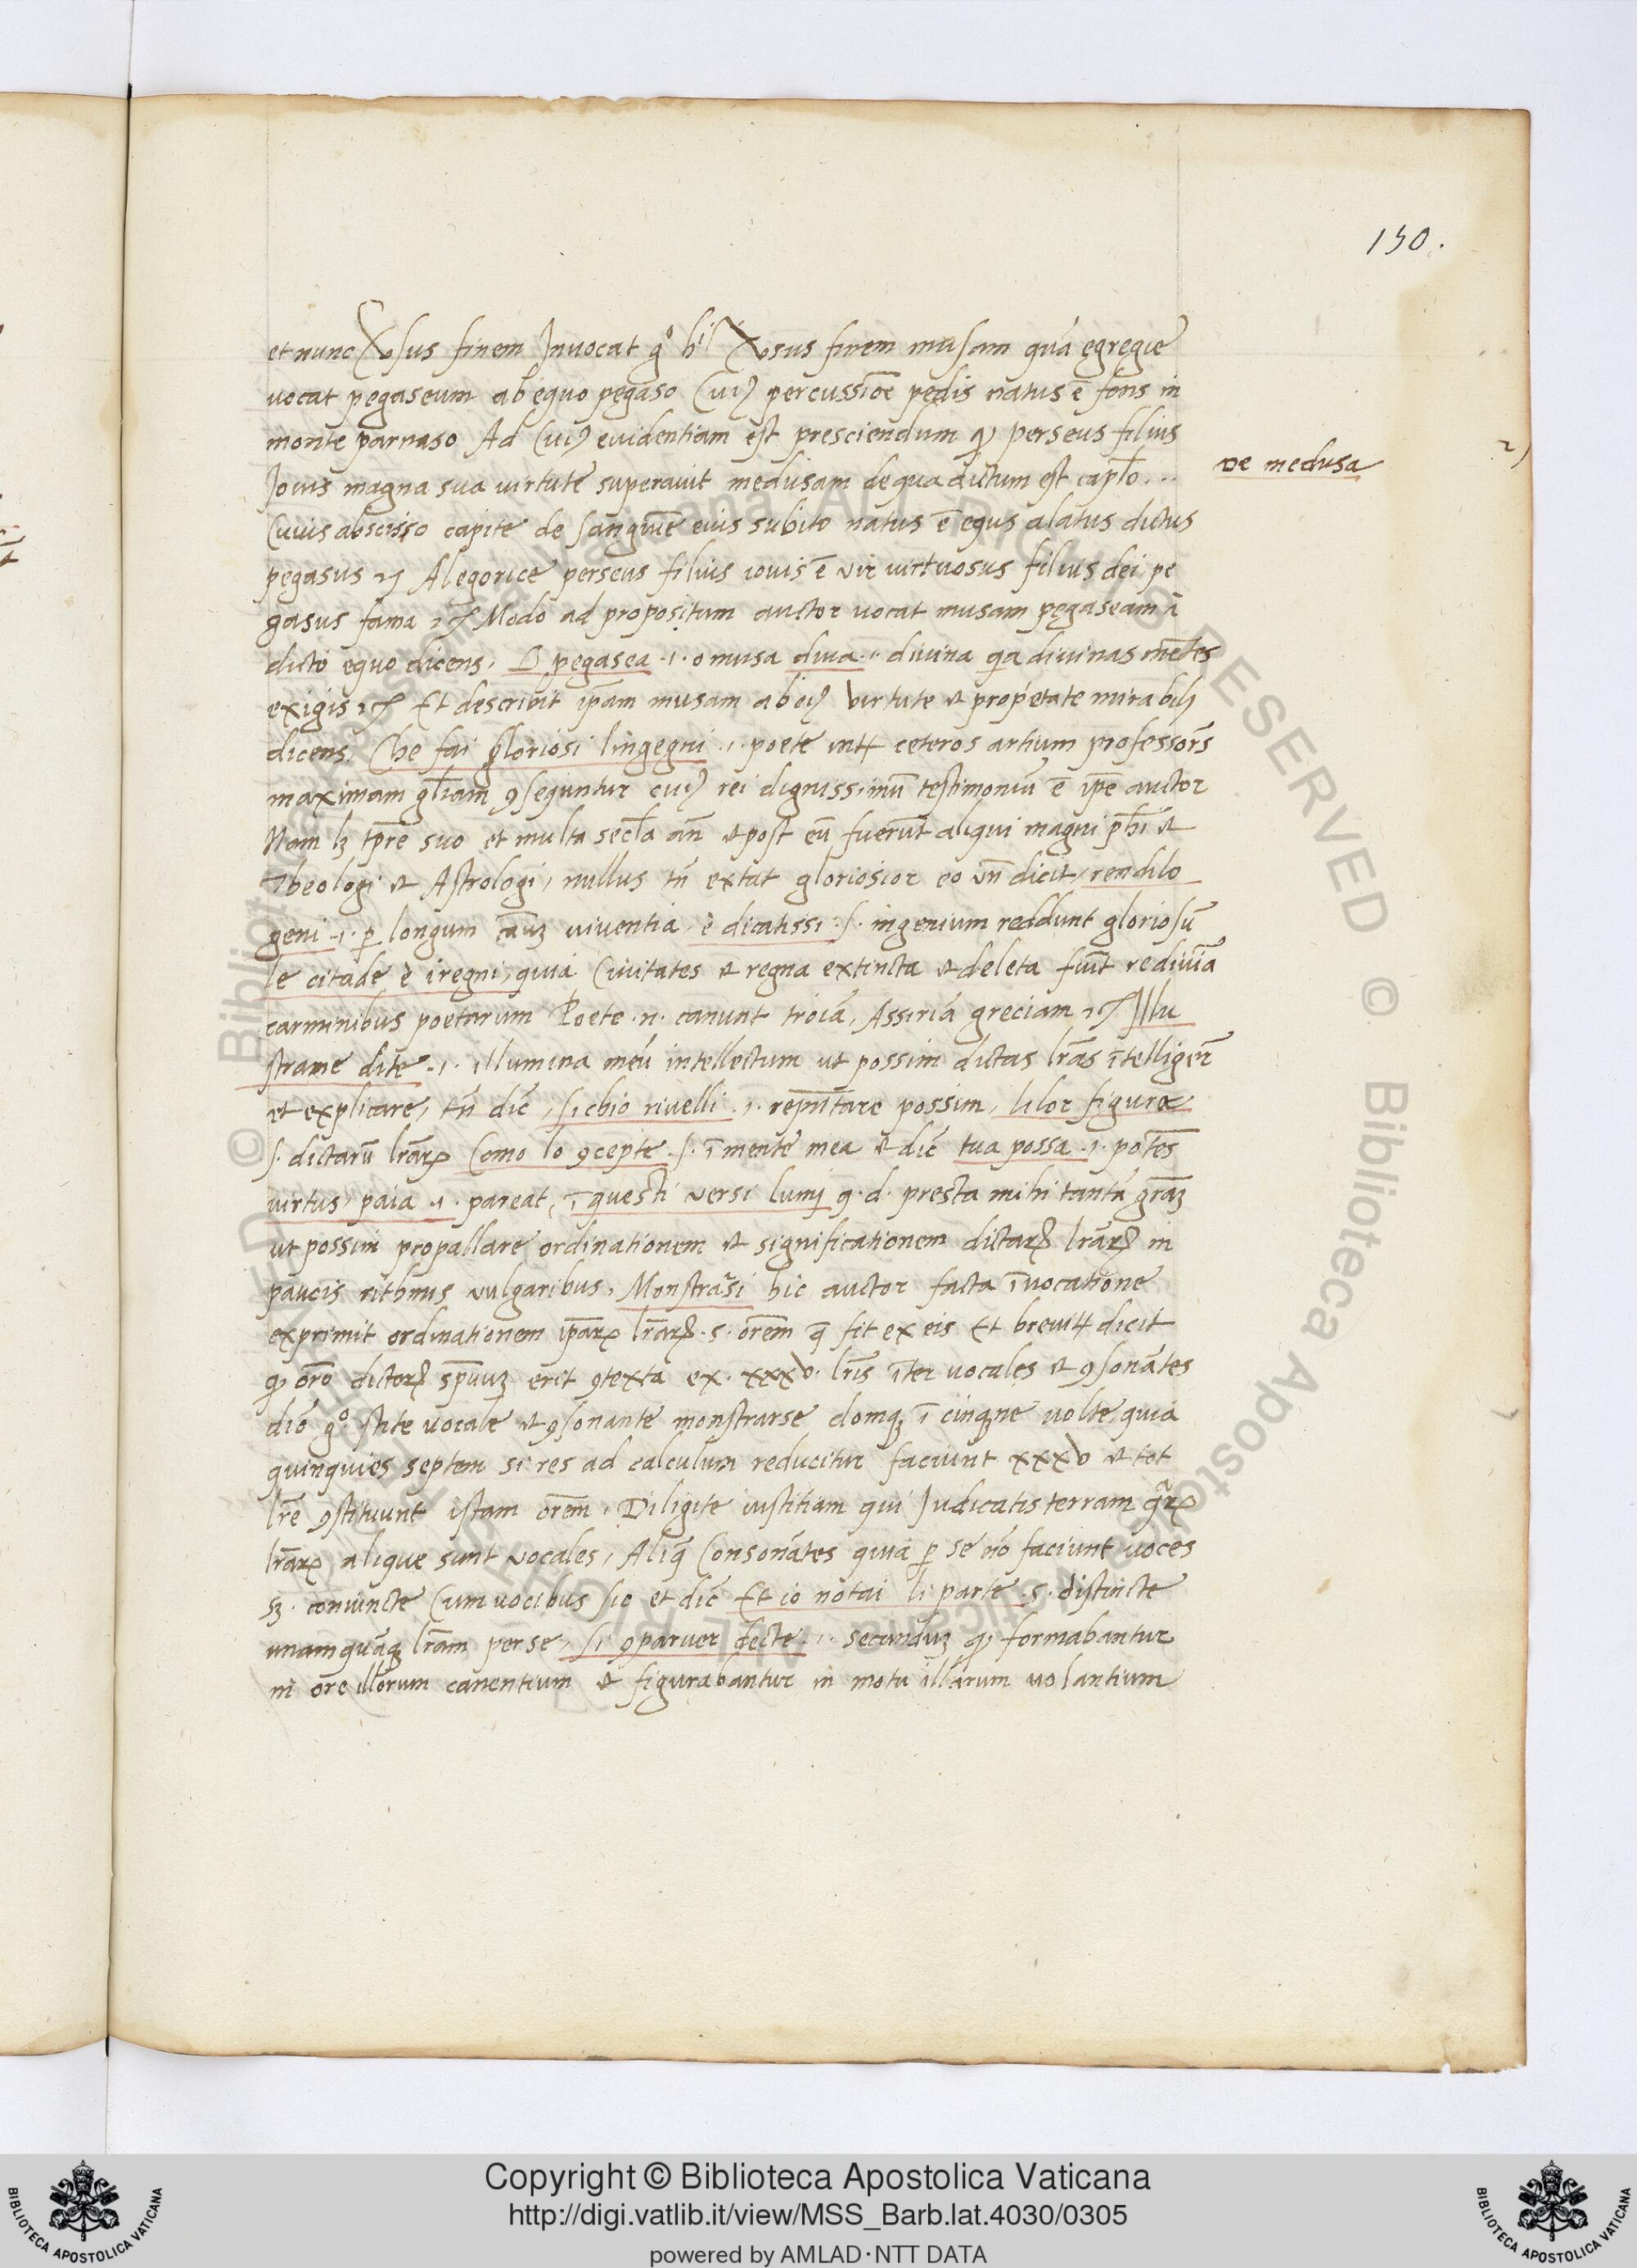 150.
et nunc Xvsus finem Invocat gº hi Xvsus finem musam quã egregie
vocat pegaseum ab equo pegaso Cuiꝰ percussiõe pedis natus ẽ fons in
monte parnaso Ad Cuiꝰ evidentiam est presciendum ꝙ perseus filius
Jovis magna sua virtute superavit medusam de qua dictum est capľo...
de medusa
Cuius abscisso capite de sanguiẽ eius subito natus ẽ equs alatus dictus
pegasus ⁊c̃ Alegorice perseus filius iovis ẽ vir virtuosus filius dei pe
gasus fama ⁊c̃ Modo ad propositum auctor vocat musam pegaseam ã
dicto equo dicens, O pegasea .i. o musa diva .i. divina qia divinas mẽtes
exigis ⁊c̃ Et describit ip̃am musam ab eiꝰ virtute & prop̃etate mirabili
dicens. Che fai gloriosi lingegni .i. poete int̃ ceteros artium professor̃s
maximam gľiam ꝯsequntur cuiꝰ rei dignissimũ testimoniũ ẽ ip̃e auctor
Nam lꝫ tp̃re suo et multa secľa añ & post eũ fuerũt aliqui magni pħi &
Theologi & Astrologi, nullus tñ extat gloriosior eo vñ dicit, rendilo
geni .i. ꝑ longum cãuꝫ viventia è dicatissi .s. ingenium reddunt gloriosũ
le citade è iregni, quia Civitates & regna extincta & deleta fiũt rediviã
carminibus poetarum Poete .n. canunt troiã, Assiriã greciam ⁊c̃ Illu
strame dite .i. illumina meũ intellectum ut possim dictas lr̃as ĩtelliger̃
& explicare, tñ dic̃, si chio rivelli .i. repñtare possim, lilor figure
s. dictarũ lr̃aꝝ Como lo ꝯcepte .s. ĩ mente mea & dic̃ tua possa .i. potẽs
virtus, paia .i. pareat, ĩ questi versi lumi q.d. presta mihi tantã gr̃aꝫ
ut possim propallare ordinationem & significationem dictaꝝ lr̃aꝝ in
paucis rithmis vulgaribus, Monstrãsi hic auctor facta ĩvocatione
exprimit ordinationem ip̃aꝝ lr̃aꝝ .s. or̃em q̃ fit ex eis Et brevit̃ dicit
ꝙ or̃o dictoꝝ sp̃uuꝫ erit ꝯtexta ex .xxxv. lr̃is ĩter vocales & ꝯsonãtes
dic̃ gº. stite vocale & ꝯsonante monstrarse domqꝫ ĩ cinqne volte, quia
quinquies septem si res ad calculum reducitur faciunt xxxv & tot
lr̃e ꝯstituunt istam or̃em, Diligite iustitiam qui Judicatis terram qr̃ꝝ
lr̃aꝝ alique sunt vocales, Aliq̃ Consonãtes quia ꝑ se nõ faciunt voces
sꝫ. coniuncte Cum vocibus sic et dic̃ Et io notai li parte .s. distincte
unamquãqꝫ lr̃am per se, si ꝯparver decte .i. secunduꝫ ꝙ formabantur
ni ore illorum canentium & figurabantur in motu illarum volantium
Copyright © Biblioteca Apostolica Vaticana
http://digi.vatlib.it/view/MSS_Barb.lat.4030/0305
powered by AMLAD·NTT DATA